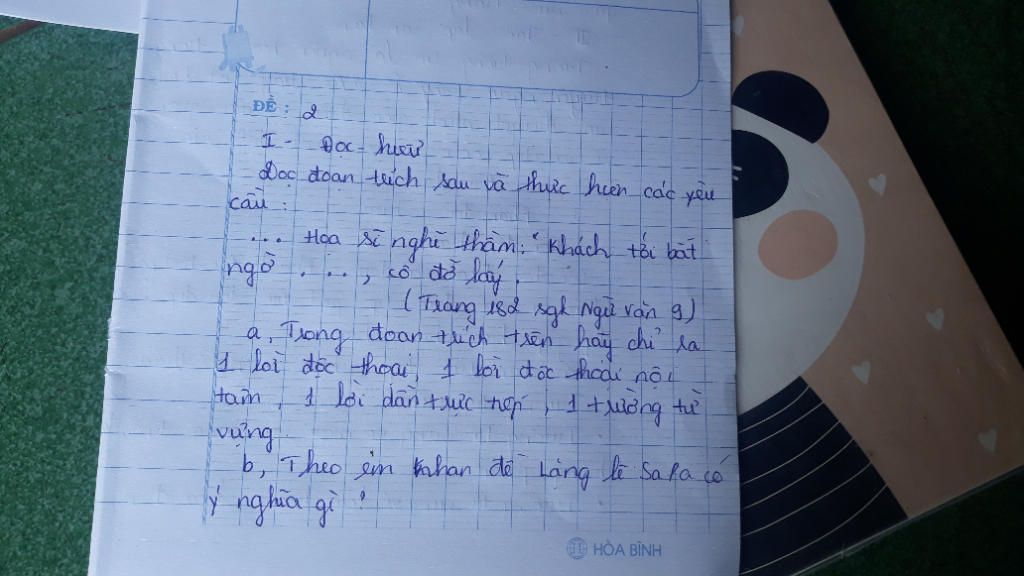 ĐỀ: 2
I - Đọc - hiểu
Đọc đoạn trích sau và thực hiện các yêu
cầu:
... Họa sĩ nghĩ thầm: "Khách tới bất
ngờ . . ., cô đỡ lấy.
(Trang 182 sgk Ngữ văn 9)
a, Trong đoạn trích trên hãy chỉ ra
1 lời độc thoại, 1 lời độc thoại nội
tâm, 1 lời dẫn trực tiếp, 1 trường từ
vựng.
b, Theo em nhan đề Lặng lẽ Sa Pa có
ý nghĩa gì?
HÒA BÌNH